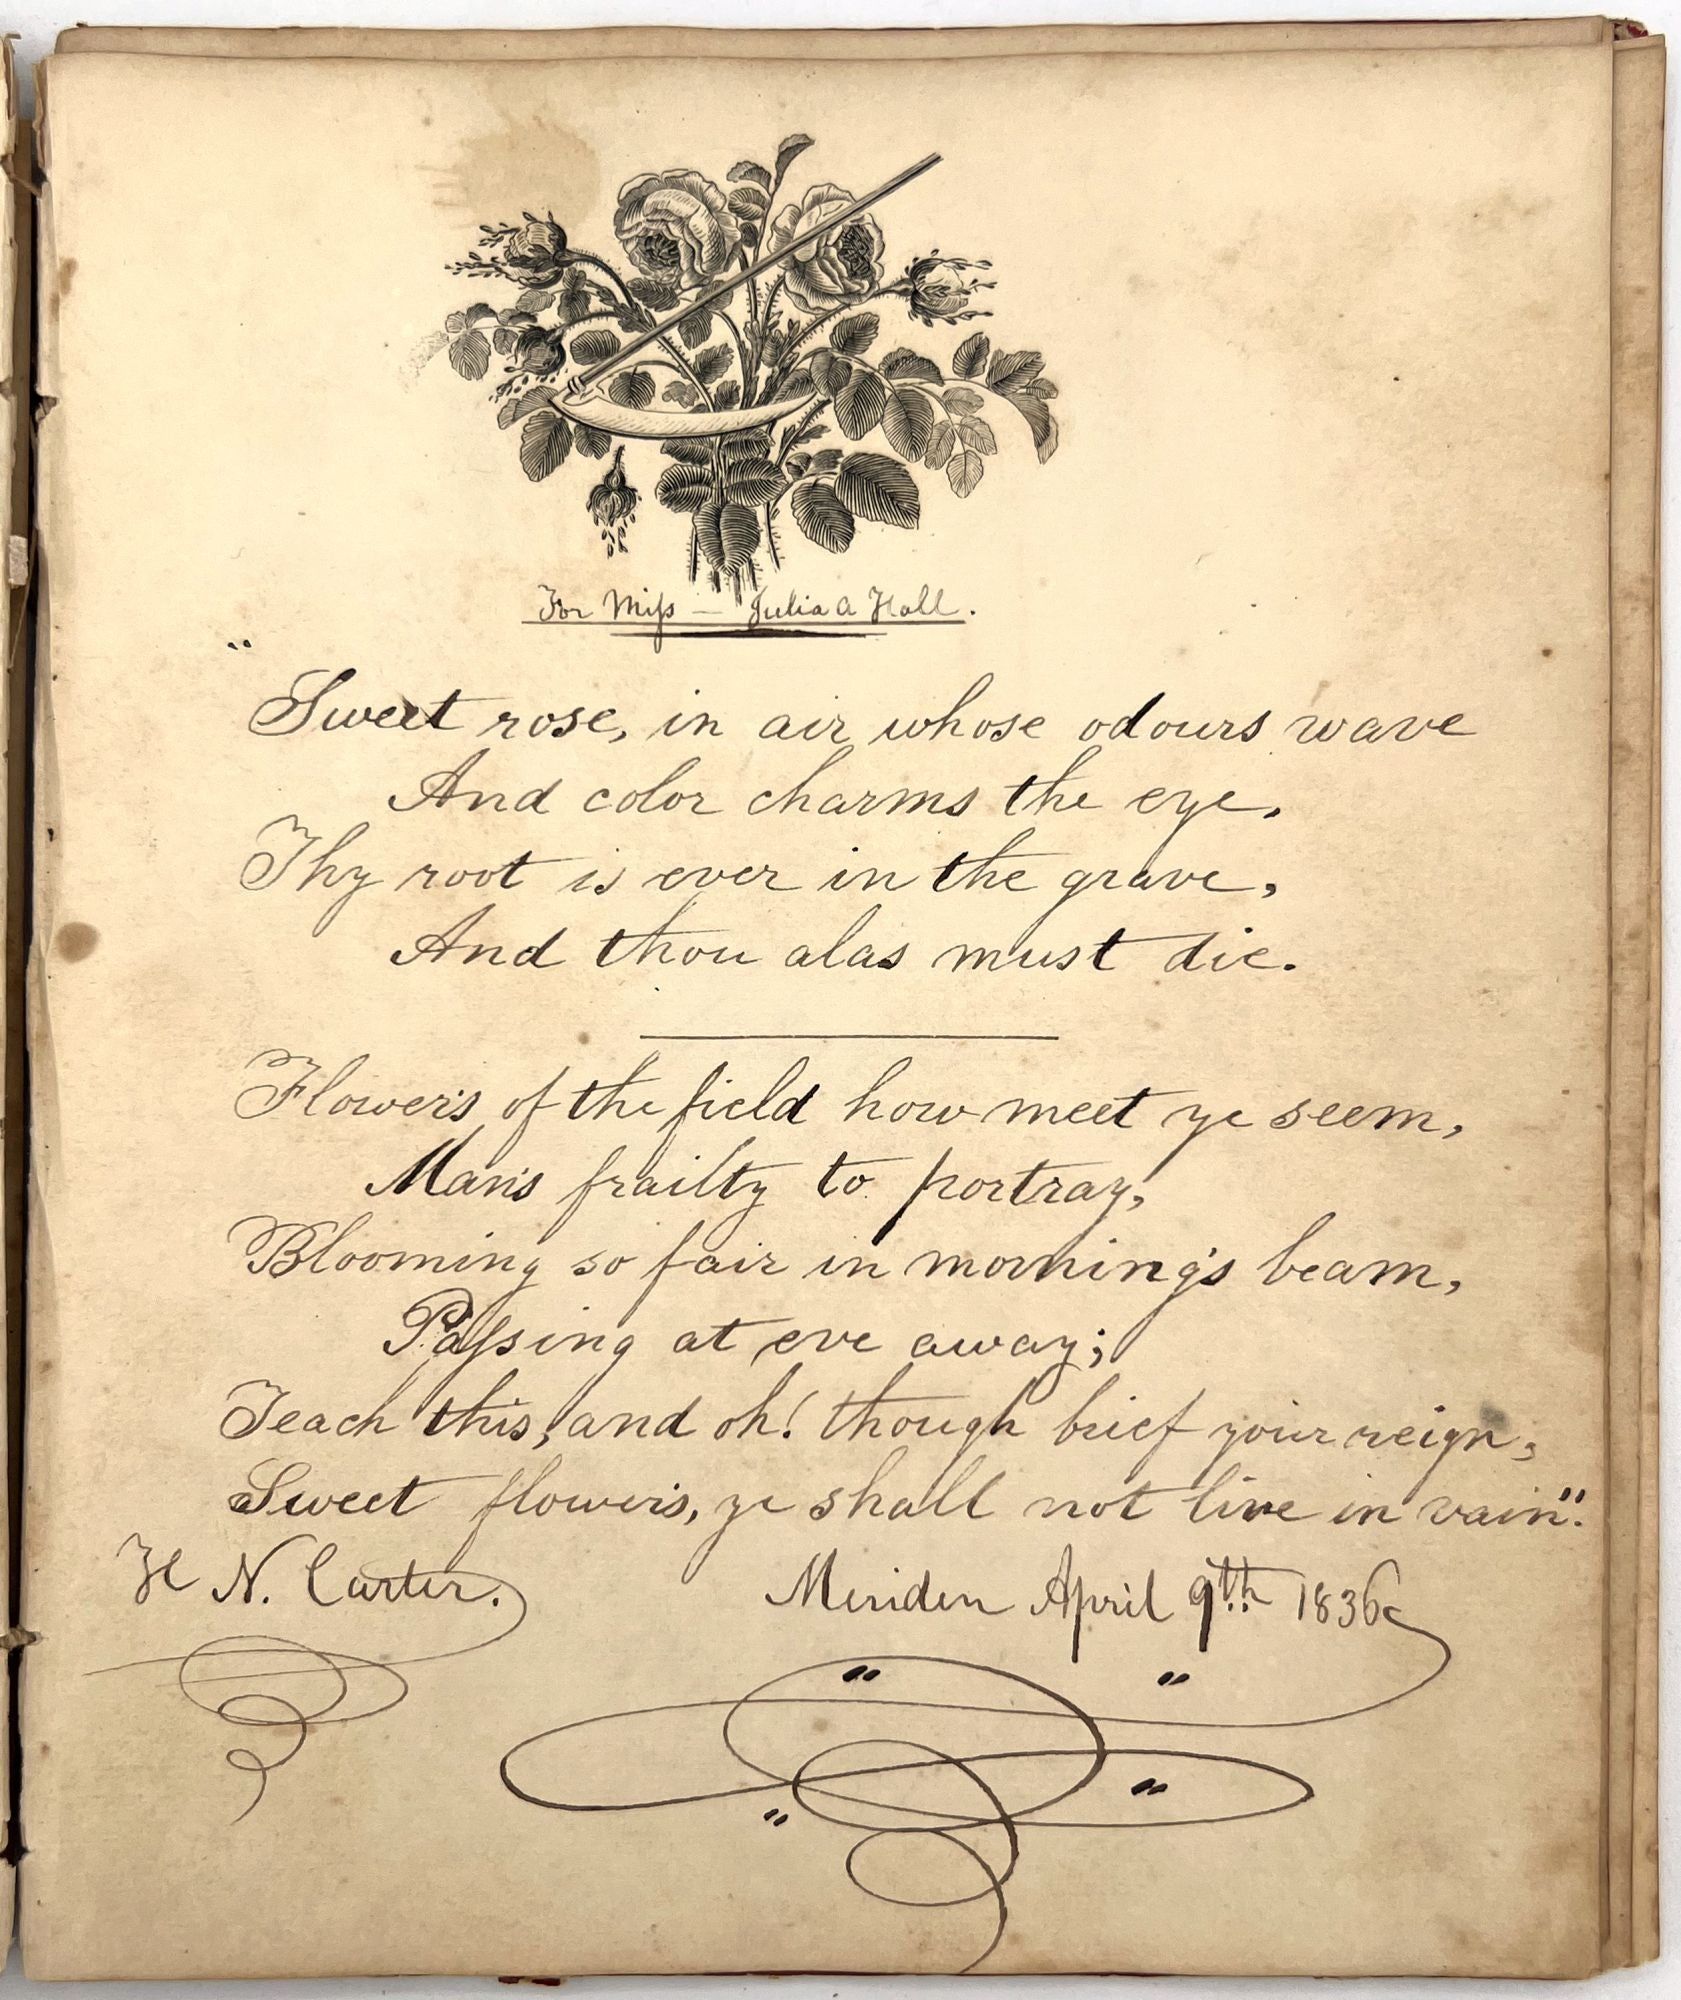 For Miſs — Julia A Hall.
"Sweet rose, in air whose odours wave
And color charms the eye,
Thy root is ever in the grave,
And thou alas must die.
Flowers of the field how meet ye seem,
Man's frailty to portray,
Blooming so fair in morning's beam,
Paſsing at eve away;
Teach this, and oh! though brief your reign,
Sweet flowers, ye shall not live in vain".
H N. Carter. Meriden April 9th 1836